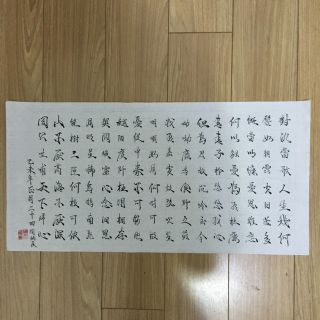 對酒當歌人生幾何
譬如朝露去日苦多
慨當以慷憂思難忘
何以解憂唯有杜康
青青子衿悠悠我心
但為君故沉吟至今
呦呦鹿鳴食野之苹
我有嘉賓鼓瑟吹笙
明明如月何時可掇
憂從中來不可斷絕
越陌度阡枉用相存
契闊談讌心念舊恩
月明星稀烏鵲南飛
繞樹三匝何枝可依
山不厭高海不厭深
周公吐哺天下歸心
乙未年正月二十四